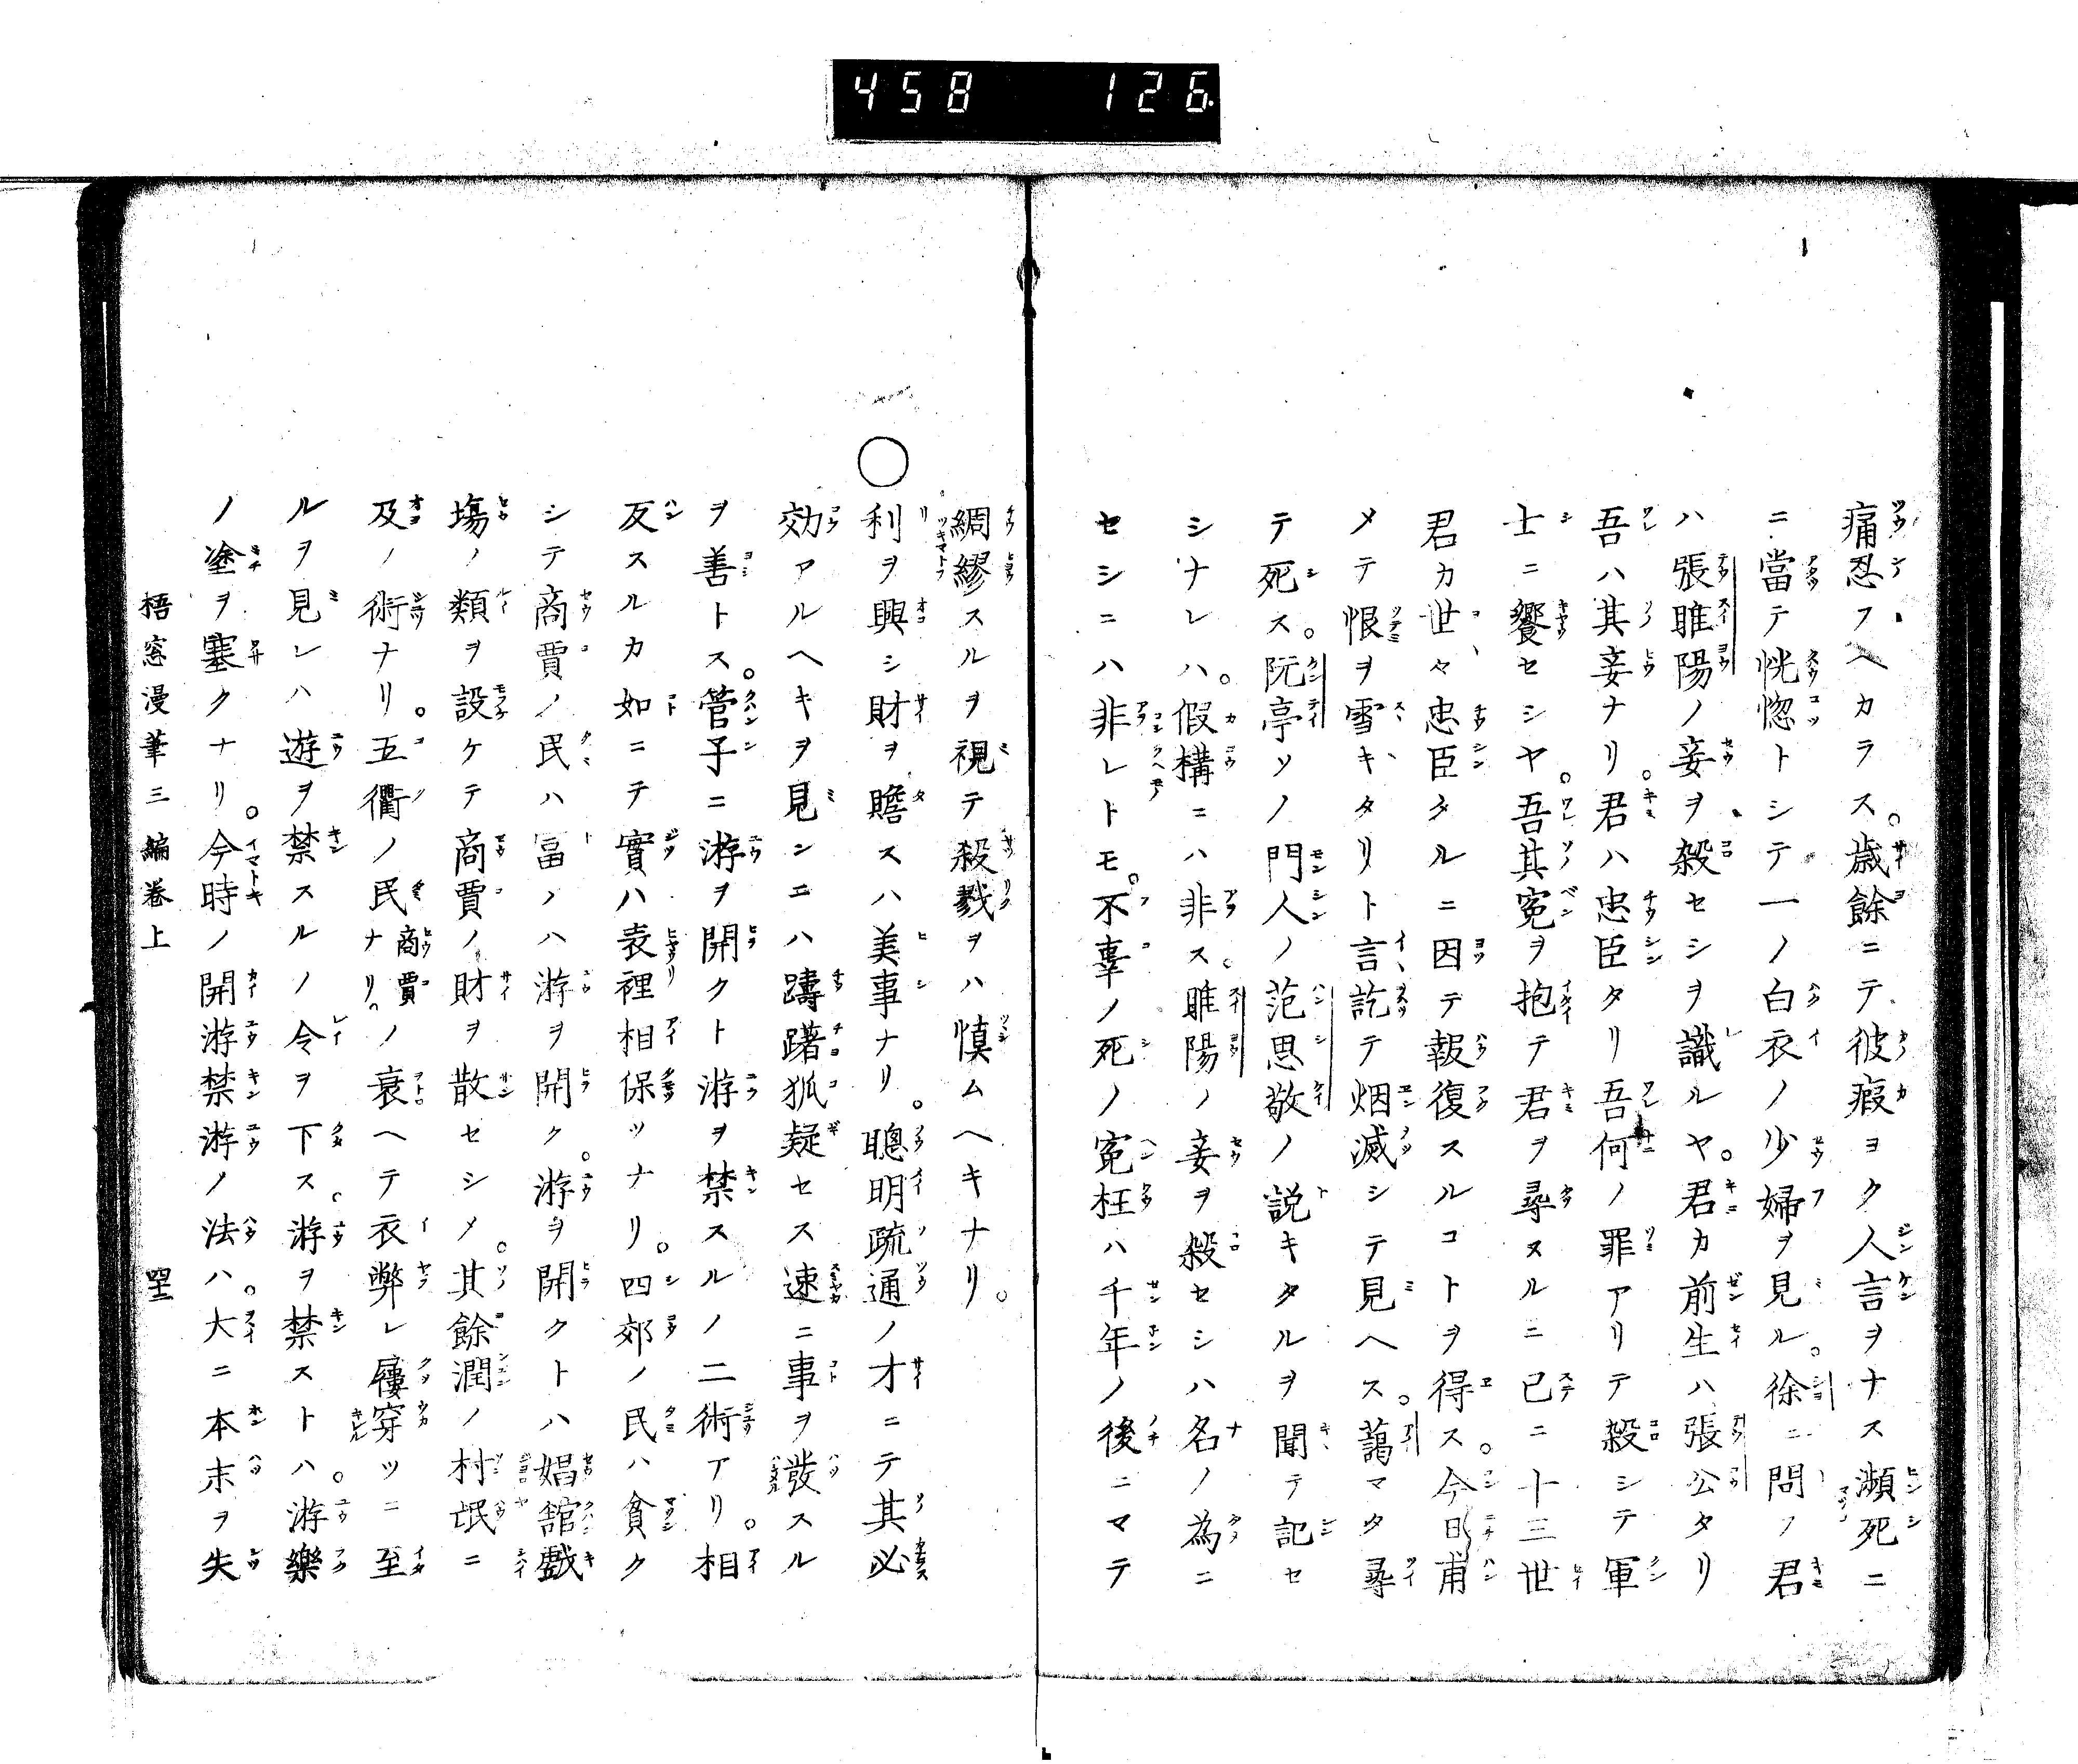 458 126
痛忍フヘカラス。歳餘ニテ彼瘕ヨク人言ヲナス瀕死ニ
ニ當テ恍惚トシテ一ノ白衣ノ少婦ヲ見ル。徐ニ問ノ君
ハ張睢陽ノ妾ヲ殺セシヲ識ルヤ。君カ前生ハ張公タリ
吾ハ其妾ナリ。君ハ忠臣タリ吾何ノ罪アリテ殺シテ軍
士ニ饗セシヤ。吾其寃ヲ抱テ君ヲ尋ヌルニ已ニ十三世
君カ世々忠臣タルニ因テ報復スルコトヲ得ス。今日甫
メテ恨ヲ雪キタリト言訖テ烟滅シテ見ヘス。藹マタ尋
テ死ス。阮亭ソノ門人ノ范思敬ノ説キタルヲ聞テ記セ
シナレハ。假構ニハ非ス。睢陽ノ妾ヲ殺セシハ名ノ為ニ
セシニハ非レトモ。不辜ノ死ノ寃枉ハ千年ノ後ニマテ
綢繆スルヲ視テ殺戮ヲハ慎ムヘキナリ。
○利ヲ興シ財ヲ贍スハ美事ナリ。聰明疏通ノ才ニテ其必
効アルヘキヲ見ンニハ躊躇狐疑セス速ニ事ヲ發スル
ヲ善トス。管子ニ游ヲ開クト游ヲ禁スルノ二術アリ。相
反スルカ如ニテ實ハ表裡相保ツナリ。四郊ノ民ハ貧ク
シテ商賈ノ民ハ冨ノハ游ヲ開ク。游ヲ開クトハ娼舘戲
塲ノ類ヲ設ケテ商賈ノ財ヲ散セシメ。其餘潤ノ村氓ニ
及ノ術ナリ。五衢ノ民商賈ナリ。ノ衰ヘテ衣弊レ屨穿ツニ至
ルヲ見レハ遊ヲ禁スルノ令ヲ下ス。游ヲ禁ストハ。游樂
ノ塗ヲ塞クナリ。今時ノ開游禁游ノ法ハ。大ニ本末ヲ失
梧窓漫筆三編卷上